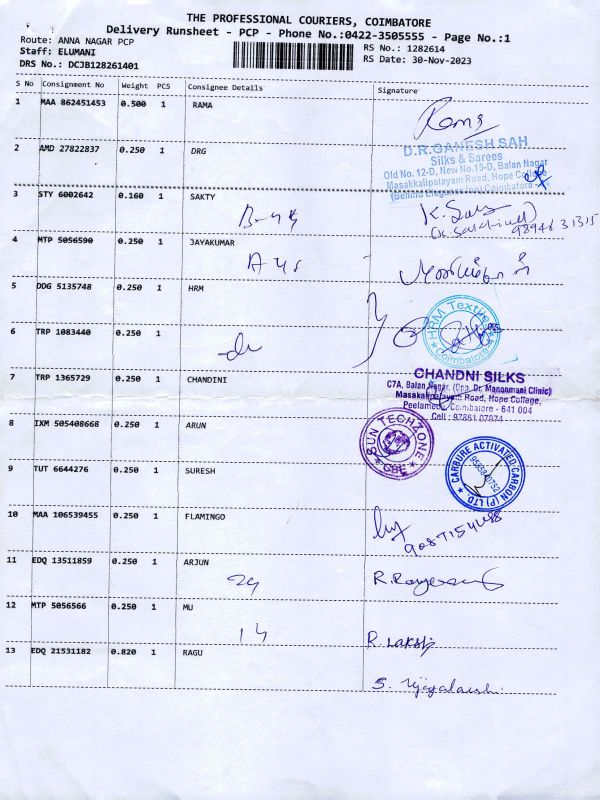 THE PROFESSIONAL COURIERS, COIMBATORE
Delivery Runsheet - PCP - Phone No.:0422-3505555 - Page No.:1
Route: ANNA NAGAR PCP
Staff: ELUMANI
DRS No.: DCJB128261401
RS No.: 1282614
RS Date: 30-Nov-2023
S No Consignment No Weight PCS Consignee Details Signature
1 MAA 862451453 0.500 1 RAMA
Rama
2 AMD 27822837 0.250 1 DRG
D.R.GANESH SAH
Silks & Sarees
Old No. 12-D, New No.15-D, Balan Nagar
Masakkalipalayam Road, Hope College
Coimbatore
3 STY 6002642 0.160 1 SAKTY
4 MTP 5056590 0.250 1 JAYAKUMAR
5 DDG 5135748 0.250 1 HRM
HRM Textile
Coimbatore
6 TRP 1083440 0.250 1
7 TRP 1365729 0.250 1 CHANDINI
CHANDNI SILKS
C7A, Balan Nagar, (Opp. Dr. Manonmani Clinic)
Masakalipalayam Road, Hope College,
Peelamedu, Coimbatore - 641 004
Cell : 97861 07874
8 IXM 505408668 0.250 1 ARUN
SUN TECHZONE
CBE
9 TUT 6644276 0.250 1 SURESH
CARBURE ACTIVATED CARBON (P) LTD.
10 MAA 106539455 0.250 1 FLAMINGO
11 EDQ 13511859 0.250 1 ARJUN
12 MTP 5056566 0.250 1 MU
13 EDQ 21531182 0.820 1 RAGU